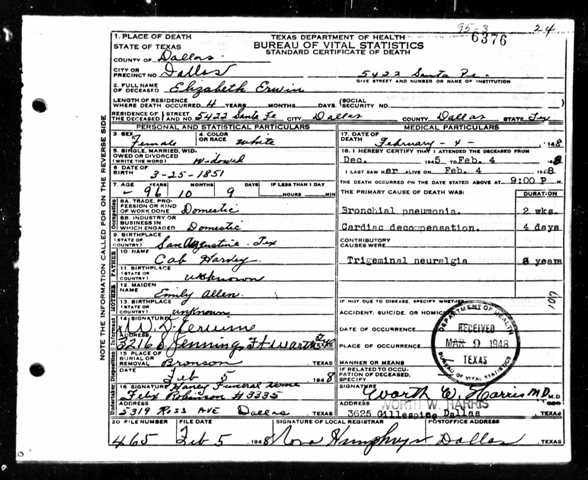 9563 24
6376
1. PLACE OF DEATH
STATE OF TEXAS
TEXAS DEPARTMENT OF HEALTH
BUREAU OF VITAL STATISTICS
STANDARD CERTIFICATE OF DEATH
COUNTY OF Dallas
CITY OR PRECINCT NO. Dallas 5422 Santa Fe.
GIVE STREET AND NUMBER OR NAME OF INSTITUTION
2. FULL NAME OF DECEASED Elizabeth Erwin
LENGTH OF RESIDENCE WHERE DEATH OCCURRED 4 YEARS MONTHS DAYS (SOCIAL SECURITY NO.
RESIDENCE OF THE DECEASED STREET AND NO. 5422 Santa Fe CITY Dallas COUNTY Dallas STATE Tex
PERSONAL AND STATISTICAL PARTICULARS
3. SEX Female
4. COLOR OR RACE white
5. SINGLE, MARRIED, WIDOWED OR DIVORCED (WRITE THE WORD) widowed
6. DATE OF BIRTH 3-25-1851
7. AGE YEARS MONTHS DAYS IF LESS THAN 1 DAY
96 10 9 HOURS MIN.
8A. TRADE, PROFESSION OR KIND OF WORK DONE Domestic
8B. INDUSTRY OR BUSINESS IN WHICH ENGAGED Domestic
9. BIRTHPLACE (STATE OR COUNTRY) San Augustine - Tex
10. NAME Cab Harvey
11. BIRTHPLACE (STATE OR COUNTRY) unknown
12. MAIDEN NAME Emily Allen
13. BIRTHPLACE (STATE OR COUNTRY) unknown
14. SIGNATURE
ADDRESS 3216 S Jennings Ft Worth
15. PLACE OF BURIAL OR REMOVAL Bronson TEXAS
Feb 5 1948
16. SIGNATURE Funeral Home
Felix Robinson # 3335
ADDRESS
5319 Ross Ave Dallas TEXAS
MEDICAL PARTICULARS
17. DATE OF DEATH February - 4 - 1948
18. I HEREBY CERTIFY THAT I ATTENDED THE DECEASED FROM
Dec. 1945 TO Feb. 4 1948
I LAST SAW HER ALIVE ON Feb. 4 1948.
THE DEATH OCCURRED ON THE DATE STATED ABOVE AT 9:00 P M.
THE PRIMARY CAUSE OF DEATH WAS: DURATION
Bronchial pneumonia. 2 wks.
Cardiac decompensation. 4 days
CONTRIBUTORY CAUSES WERE:
Trigeminal neuralgia 8 years
107
IF NOT DUE TO DISEASE, SPECIFY WHETHER
ACCIDENT, SUICIDE, OR HOMICIDE
DATE OF OCCURRENCE
PLACE OF OCCURRENCE
MANNER OR MEANS
IF RELATED TO OCCUPATION OF DECEASED, SPECIFY
DEPARTMENT OF HEALTH
RECEIVED
MAR 9 1948
TEXAS
BUREAU OF VITAL STATISTICS
SIGNATURE Worth W. Harris M.D. M.D.
WORTH W. HARRIS
ADDRESS
3625 Gillespie Dallas TEXAS
20. FILE NUMBER FILE DATE SIGNATURE OF LOCAL REGISTRAR POSTOFFICE ADDRESS
465 Feb 5 1948 Nora Humphreys Dallas TEXAS
NOTE THE INFORMATION CALLED FOR ON THE REVERSE SIDE
FATHER
MOTHER